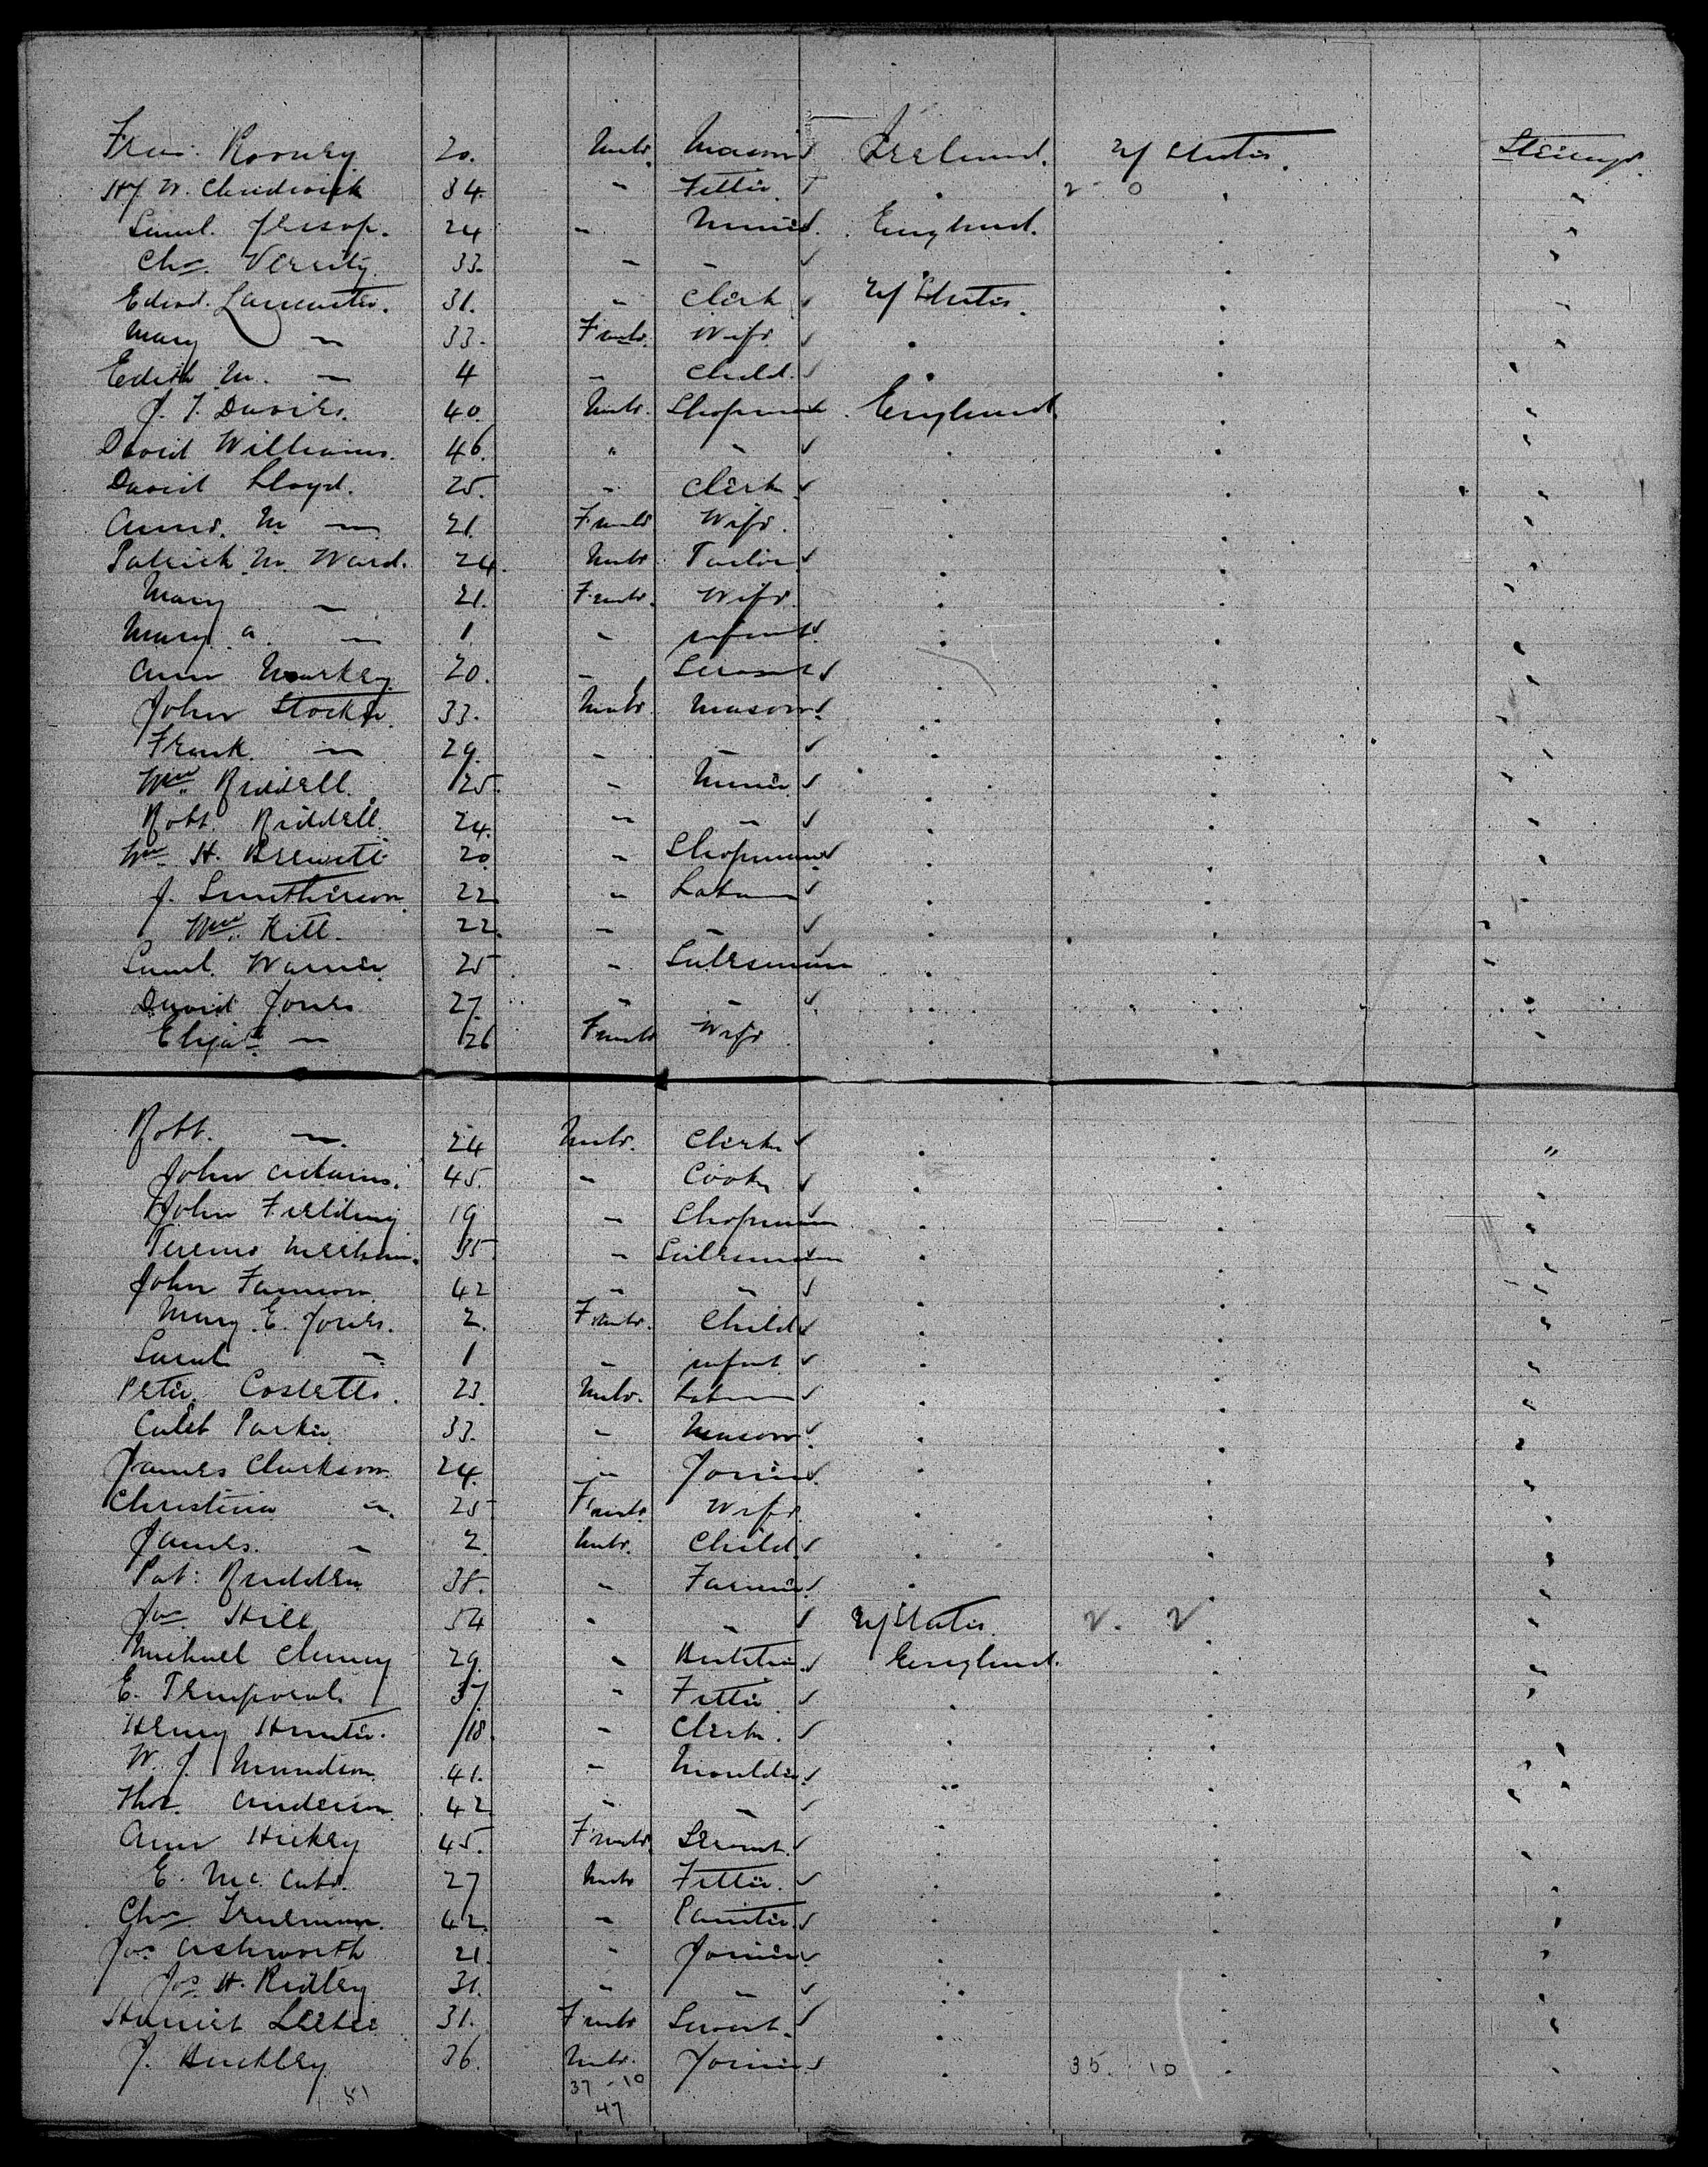 Fras. Rooney 20. Male Mason Ireland. U/States. Steerage
Hy W. Chadwick 34. " Fitter " " "
Saml. Jessop. 24 " Miner England. " "
Chs. Verity 33. " " " "
Edwd. Lancaster. 31. " Clerk U/States. " "
Mary " 33. Female Wife " " "
Edith M. " 4 " Child. " " "
J. T. Davies. 40. Male Shopman England " "
David Williams. 46. " " " " "
David Lloyd. 25. " Clerk " " "
Annie. M " 21. Female Wife. " " "
Patrick M. Ward. 24. Male Tailor " " "
Mary " 21. Female Wife. " " "
Mary A. " 1 " infant " " "
Ann Markey 20. " Servant " " "
John Stocker. 33. Male Mason " " "
Frank " 29. " " " " "
Wm Riddell. 25. " Miner " " "
Robt. Riddell 24. " " " " "
Wm H. Brewste 20 " Shopman " " "
J. Smitherson 22 " Labr " " "
Wm. Kill. 22. " " " " "
Saml. Warner 25 " Salesman " " "
David Jones 27. " " " " "
Elizath " 26 Female Wife " " "
Robt. " 24 Male. Clerk " " "
John Adams. 45. " Cook " " "
John Fielding 19 " Shopman " " "
Terence 35 " Salesman " " "
John 42 " " " " "
Mary E. Jones. 2. Female. Child " " "
Sarah " 1 " infant " " "
Peter Costello. 23. Male. Labr " " "
Caleb Parker. 33. " Mason. " " "
James Clarkson. 24. " Joiner. " " "
Christina " 25 Female Wife. " " "
James. " 2 Male. Child " " "
Pat: 38. " Farmer " " "
Jas. Hill 54 " " U/States. 2. 2 " "
Michael 29. " England. " "
E. Temporal 37 " Fitter " " "
Henry Hunter. 18. " Clerk. " " "
W. J. 41. " Moulder " " "
Thos. Anderson 42 " " " " "
Ann Hickey 45. Female Servant. " " "
E. McCabe. 27 Male Fitter. " " "
Chas Trueman. 42. " Painter " " "
Jos. Ashworth 21. " Joiner " " "
Jos H. Ridley 31. " " " " "
Harriet 31. Female Servant. " " "
J. Buckley 36. Male. Joiner " 35. 10 " "
51 37 - 10
47